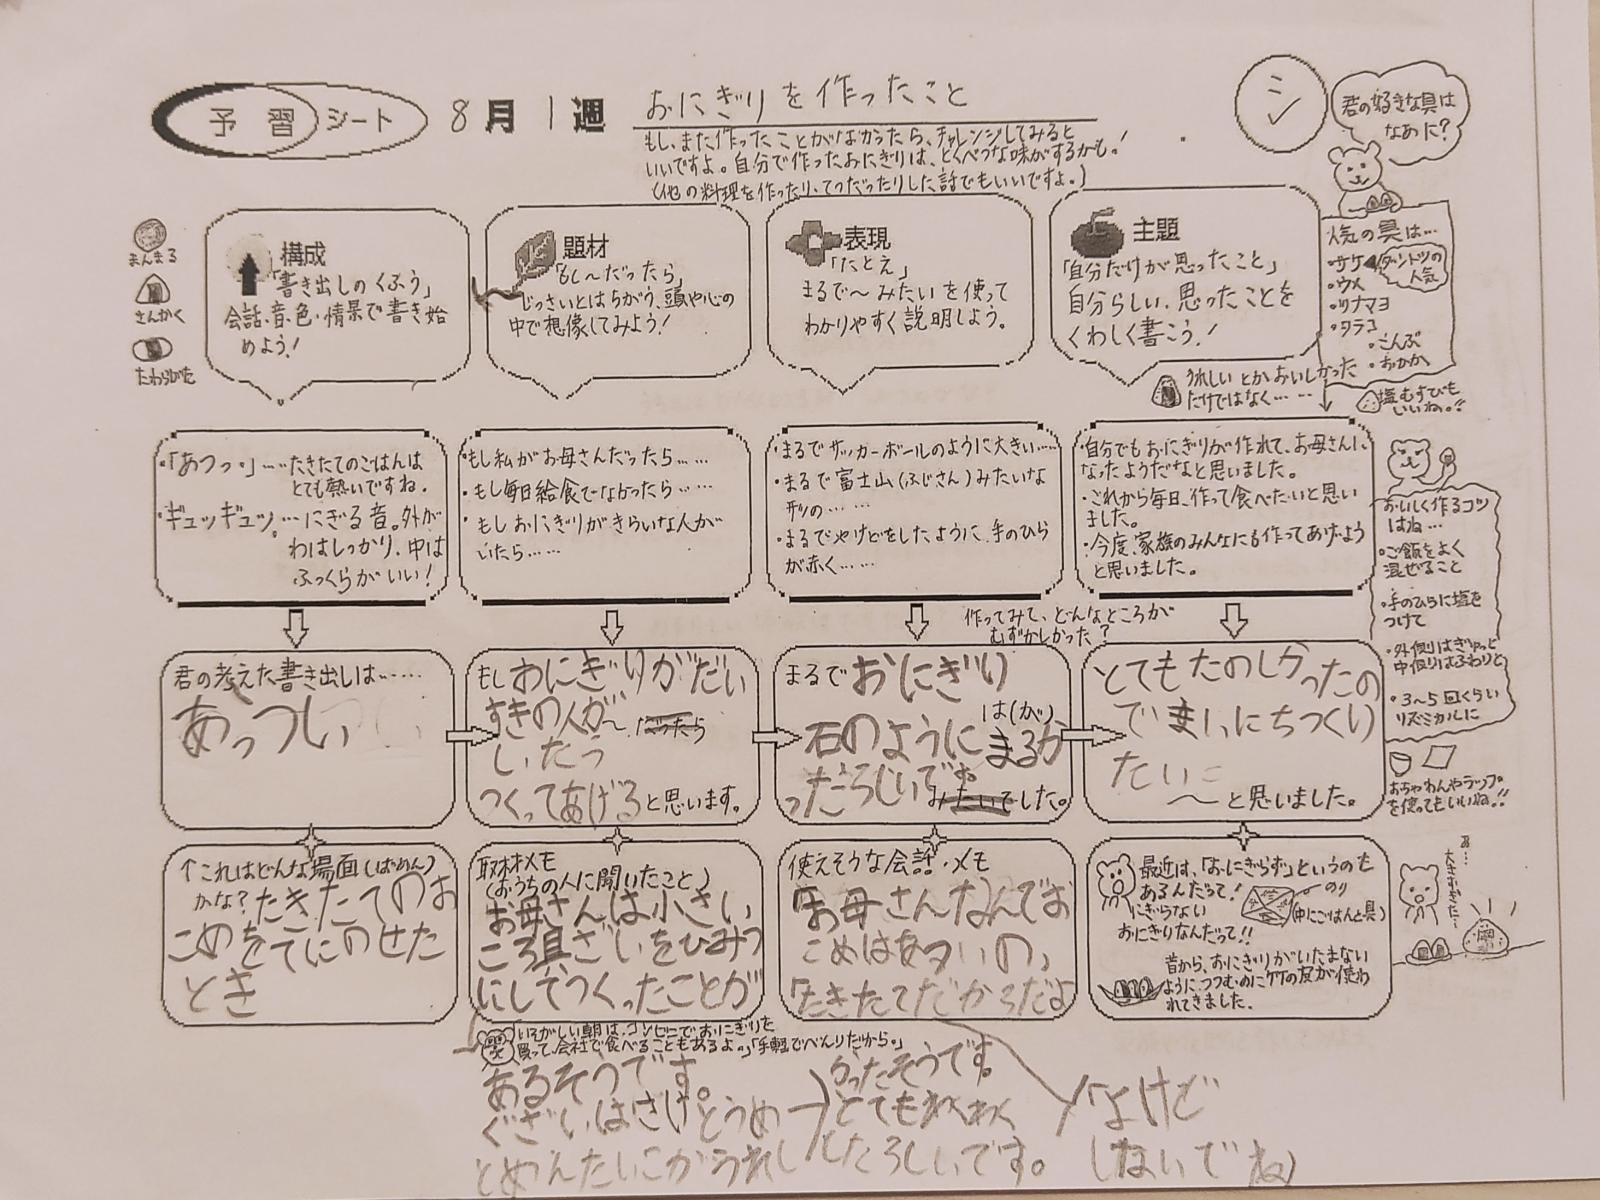 予習シート 8月1週 おにぎりを作ったこと
シ
もし、まだ作ったことがなかったら、チャレンジしてみると
いいですよ。自分で作ったおにぎりは、とくべつな味がするかも!
(他の料理を作ったり、てつだったりした話でもいいですよ。)
君の好きな具は
なあに?
まんまる
さんかく
たわらがた
構成
「書き出しのくふう」
会話、音、色、情景で書き始
めよう!
題材
「もし~だったら」
じっさいとはちがう、頭や心の
中で想像してみよう!
表現
「たとえ」
まるで~みたいを使って
わかりやすく説明しよう。
主題
「自分だけが思ったこと」
自分らしい、思ったことを
くわしく書こう!
うれしいとかおいしかった
だけではなく……
人気の具は…
・サケ
ダントツの
人気
・ウメ
・ツナマヨ
・タラコ
・こんぶ
・おかか
塩むすびも
いいね。!!
・「あつっ。」…たきたてのごはんは
とても熱いですね。
・ギュッギュッ。…にぎる音。外が
わはしっかり、中は
ふっくらがいい!
・もし私がお母さんだったら……
・もし毎日給食でなかったら……
・もしおにぎりがきらいな人が
いたら……
・まるでサッカーボールのように大きい……
・まるで富士山(ふじさん)みたいな
形の……
・まるでやけどをしたように、手のひら
が赤く……
・自分でもおにぎりが作れて、お母さんに
なったようだなと思いました。
・これから毎日、作って食べたいと思い
ました。
・今度、家族のみんなにも作ってあげよう
と思いました。
おいしく作るコツ
はね…
・ご飯をよく
混ぜること
・手のひらに塩を
つけて
・外側はぎゅっと
中側はふわりと
・3~5回くらい
リズミカルに
おちゃわんやラップ
を使ってもいいね。!!
作ってみて、どんなところが
むずかしかった?
君の考えた書き出しは……
あっつい
もしおにぎりがだい
すきの人が~だったら
いたっ
つくってあげると思います。
まるでおにぎり
は(が)
石のようにまるか
ったらしいです。
みたいでした。
とてもたのしかったの
でまいにちつくり
たい
~と思いました。
↑これはどんな場面(ばめん)
かな?たきたてのお
こめをてにのせた
とき
取材メモ
(おうちの人に聞いたこと)
お母さんは小さい
ころ具ざいをひみつ
にしてつくったことが
いそがしい朝は、コンビニでおにぎりを
買って、会社で食べることもあるよ。「手軽でべんりだから。」
あるそうです。
ぐざいはさけとうめ
とめんたいこがうれし
かったそうです。
とてもわくわく
したらしいです。
使えそうな会話・メモ
「お母さんなんでお
こめはあつついの、
「たきたてだからだよ
やけど
しないでね」
最近は、「おにぎらず」というのも
あるんだって!
にぎらない
おにぎりなんだって!!
のり
(中にごはんと具)
昔から、おにぎりがいたまない
ように、つつむのにケケの皮が使わ
れてきました。
大きすぎた…